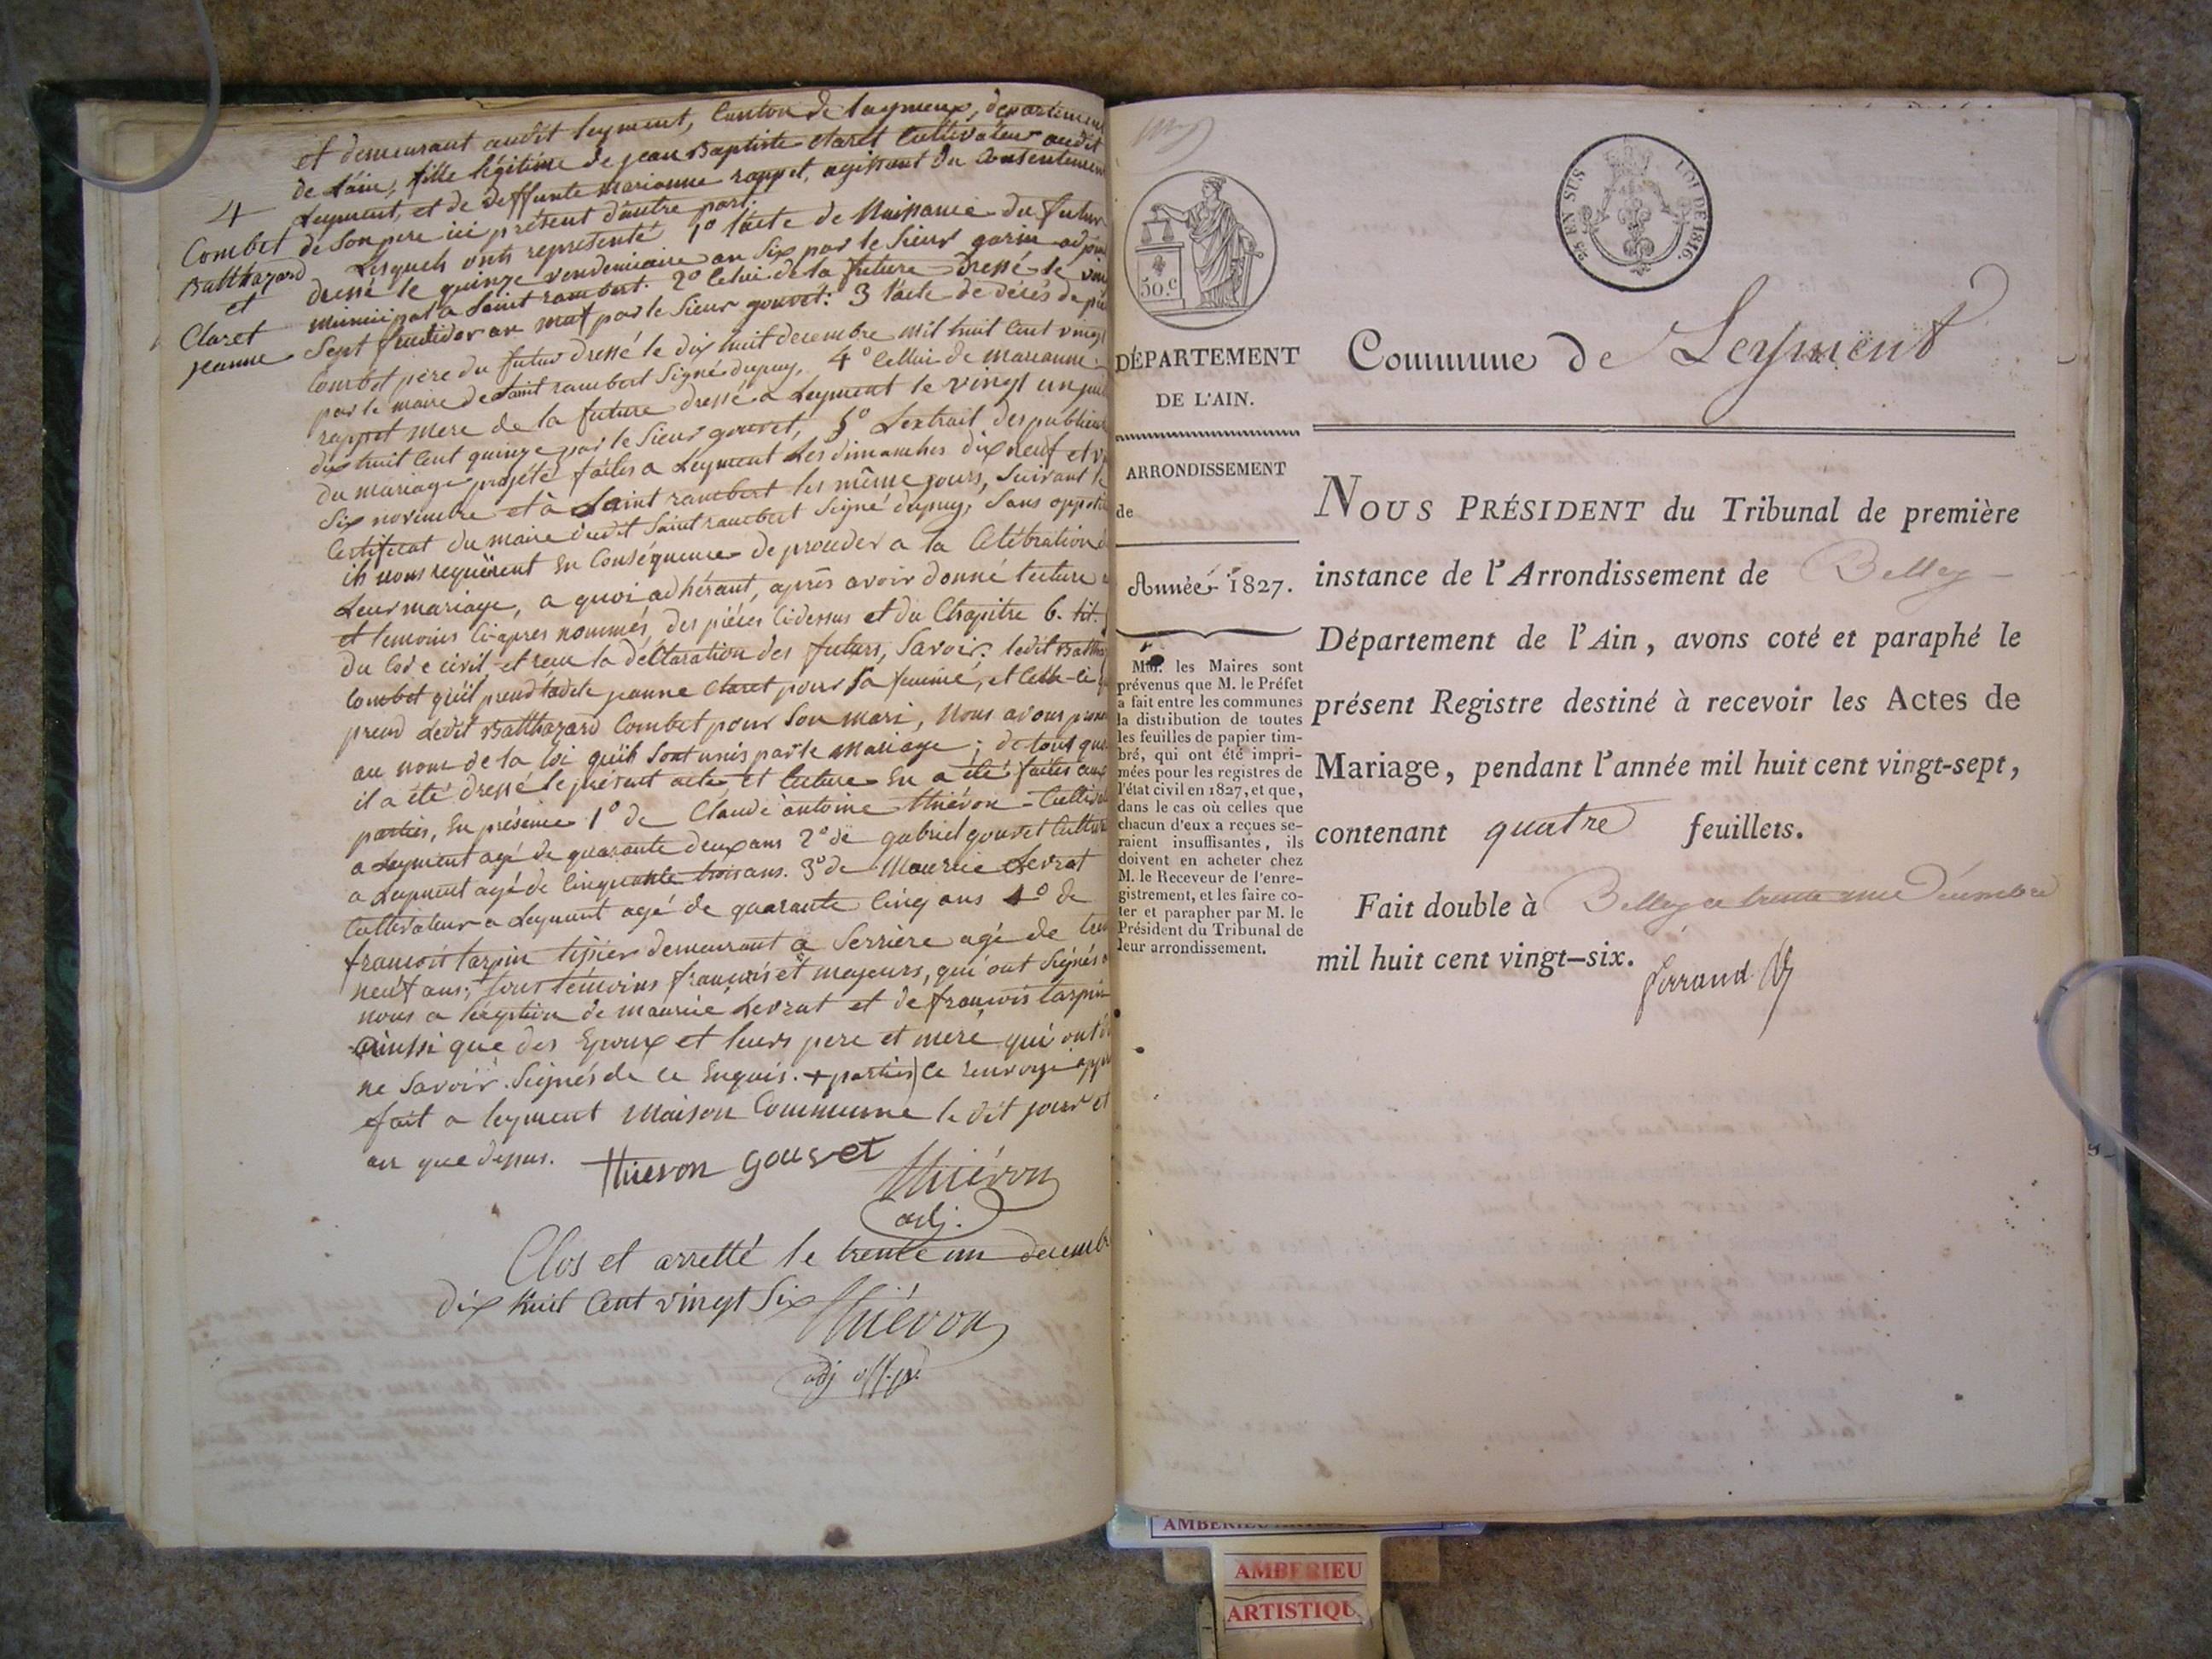 et demeurant audit leyment, Canton de lagnieux, departement
de L'ain, fille légitime de jean Baptiste Claret Cultivateur audit
Leyment, et de deffunte marianne rappet, agissant du Consentement
de Son pere ici présent d'autre part.
4
Combet
Balthazard
et
Claret
jeanne
Lesquels onts representé 1° l'acte de Naissance du futur
dressé le quinze vendemiaire an Six par le Sieur garin adjoint
municipal a Saint rambert. 2° Celui de la future dressé le vin
Sept fructidor an neuf par le Sieur gouvet: 3 l'acte de décés de
Combet père du futur dressé le dix huit decembre mil huit Cent vingt
par le maire de Saint rambert Signé dupuy. 4° Cellui de marianne
rappet mere de la future dressé a Leyment le vingt un
dix huit Cent quinze par le Sieur gouvet, 5° L'extrait des publica
du mariage projeté faites a Leyment Les dimanches dix neuf et
Six novembre et à Saint rambert les même jours, Suivant le
Certificat du maire dudit Saint rambert Signé dupuy, Sans oppositi
ils nous requièrent En Conséquence de proceder a la Célébration
Leur mariage, a quoi adhérant, après avoir donné lecture
et temoins Ci-apres nommés, des piéces Ci-dessus et du Chapitre 6. tit.
du Code civil et reçu la déclaration des futurs, Savoir: ledit Baltha
Combet qu'il prend ladite jeanne Claret pour Sa femme, et Celle-ci
prend Ledit Balthazard Combet pour Son mari, Nous avons pron
au nom de la loi qu'ils Sont unis par le Mariage; de tout quoi
il a été dressé le présent acte et lecture En a été faites aux
parties, En présence 1° de Claude antoine thiévon Cultiva
a Leyment agé de quarante deux ans 2° de gabriel gouvet Cultiv
a Leyment agé de Cinquante trois ans. 3° de Maurice Levrat
Cultivateur a Leyment agé de quarante Cinq ans 4° de
francois tarpin tissier demeurant a Serriere agé de
neuf ans; tous témoins français et majeurs, qui ont Signés
nous a l'exeption de maurice Levrat et de francois tarpin
ainssi que des Epoux et leurs pere et mere qui ont
ne Savoir Signés de Ce Enquis. + parties) Ce renvoyé app
fait a leyment Maison Commune le dit jour et
an que dessus.
thievon gouvet
thiévon
adj.
Clos et arretté le trente un decemb
dix huit Cent vingt Six
thiévon
adj off. pc.
50.c
25 EN SUS
LOI DE 1816.
DÉPARTEMENT
DE L'AIN.
ARRONDISSEMENT
de
Année 1827.
MM. les Maires sont
prévenus que M. le Préfet
a fait entre les communes
la distibution de toutes
les feuilles de papier tim-
bré, qui ont été impri-
mées pour les registres de
l'état civil en 1827, et que,
dans le cas où celles que
chacun d'eux a reçues se-
raient insuffisantes, ils
doivent en acheter chez
M. le Receveur de l'enre-
gistrement, et les faire co-
ter et parapher par M. le
Président du Tribunal de
leur arrondissement.
Commune de Leyment
NOUS PRÉSIDENT du Tribunal de première
instance de l'Arrondissement de Belley
Département de l'Ain, avons coté et paraphé le
présent Registre destiné à recevoir les Actes de
Mariage, pendant l'année mil huit cent vingt-sept,
contenant quatre feuillets.
Fait double à Belley ce trente une Décembre
mil huit cent vingt-six.
AMBERIEU
ARTISTIQU